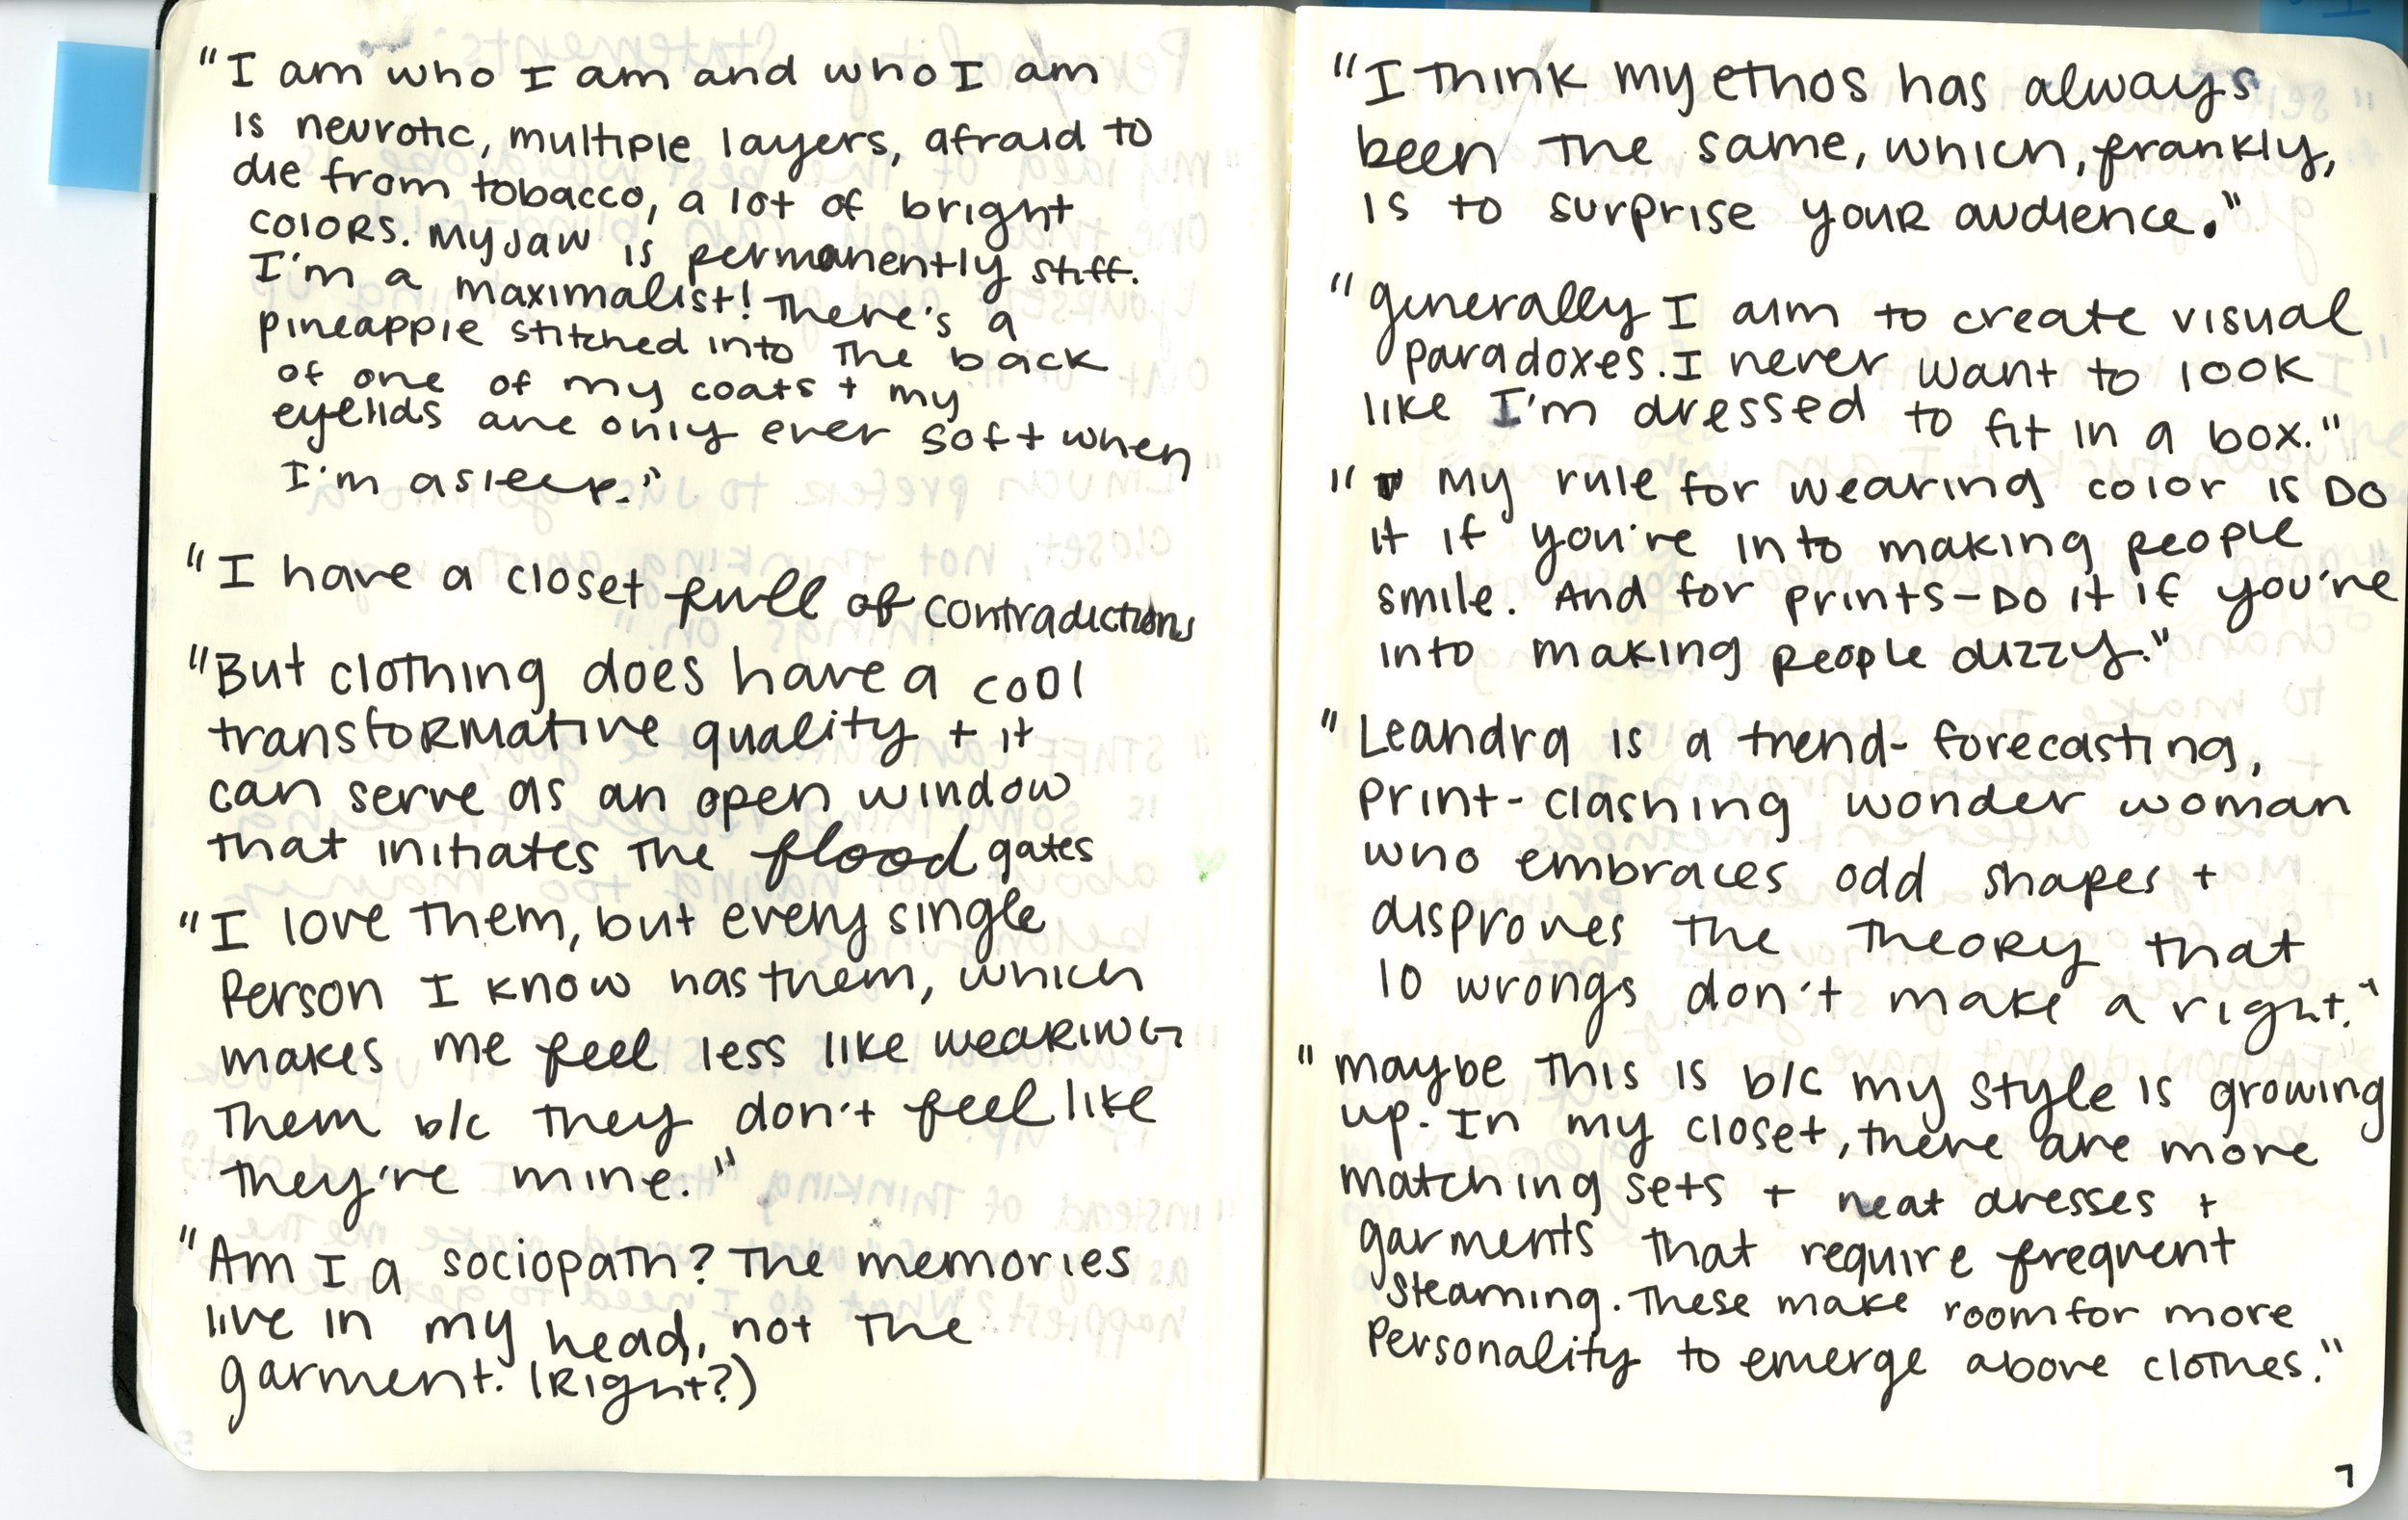 "I am who I am and who I am
is neurotic, multiple layers, afraid to
die from tobacco, a lot of bright
colors. My jaw is permanently stiff.
I'm a maximalist! There's a
pineapple stitched into the back
of one of my coats + my
eyelids are only ever soft when
I'm asleep."
"I have a closet full of contradictions
"But clothing does have a cool
transformative quality + it
can serve as an open window
that initiates the flood gates
"I love them, but every single
Person I know has them, which
makes me feel less like wearing
them b/c they don't feel like
they're mine."
"Am I a sociopath? The memories
live in my head, not the
garment. (Right?)
"I think my ethos has always
been the same, which, frankly,
is to surprise your audience."
"generally I aim to create visual
paradoxes. I never want to look
like I'm dressed to fit in a box."
"My rule for wearing color is Do
it if you're into making people
smile. And for prints-Do it if you're
into making people dizzy."
"Leandra is a trend-forecasting,
print-clashing wonder woman
who embraces odd shapes +
disproves the theory that
10 wrongs don't make a right."
"maybe this is b/c my style is growing
up. In my closet, there are more
matching sets + neat dresses +
garments that require frequent
steaming. These make room for more
Personality to emerge above clothes."
7